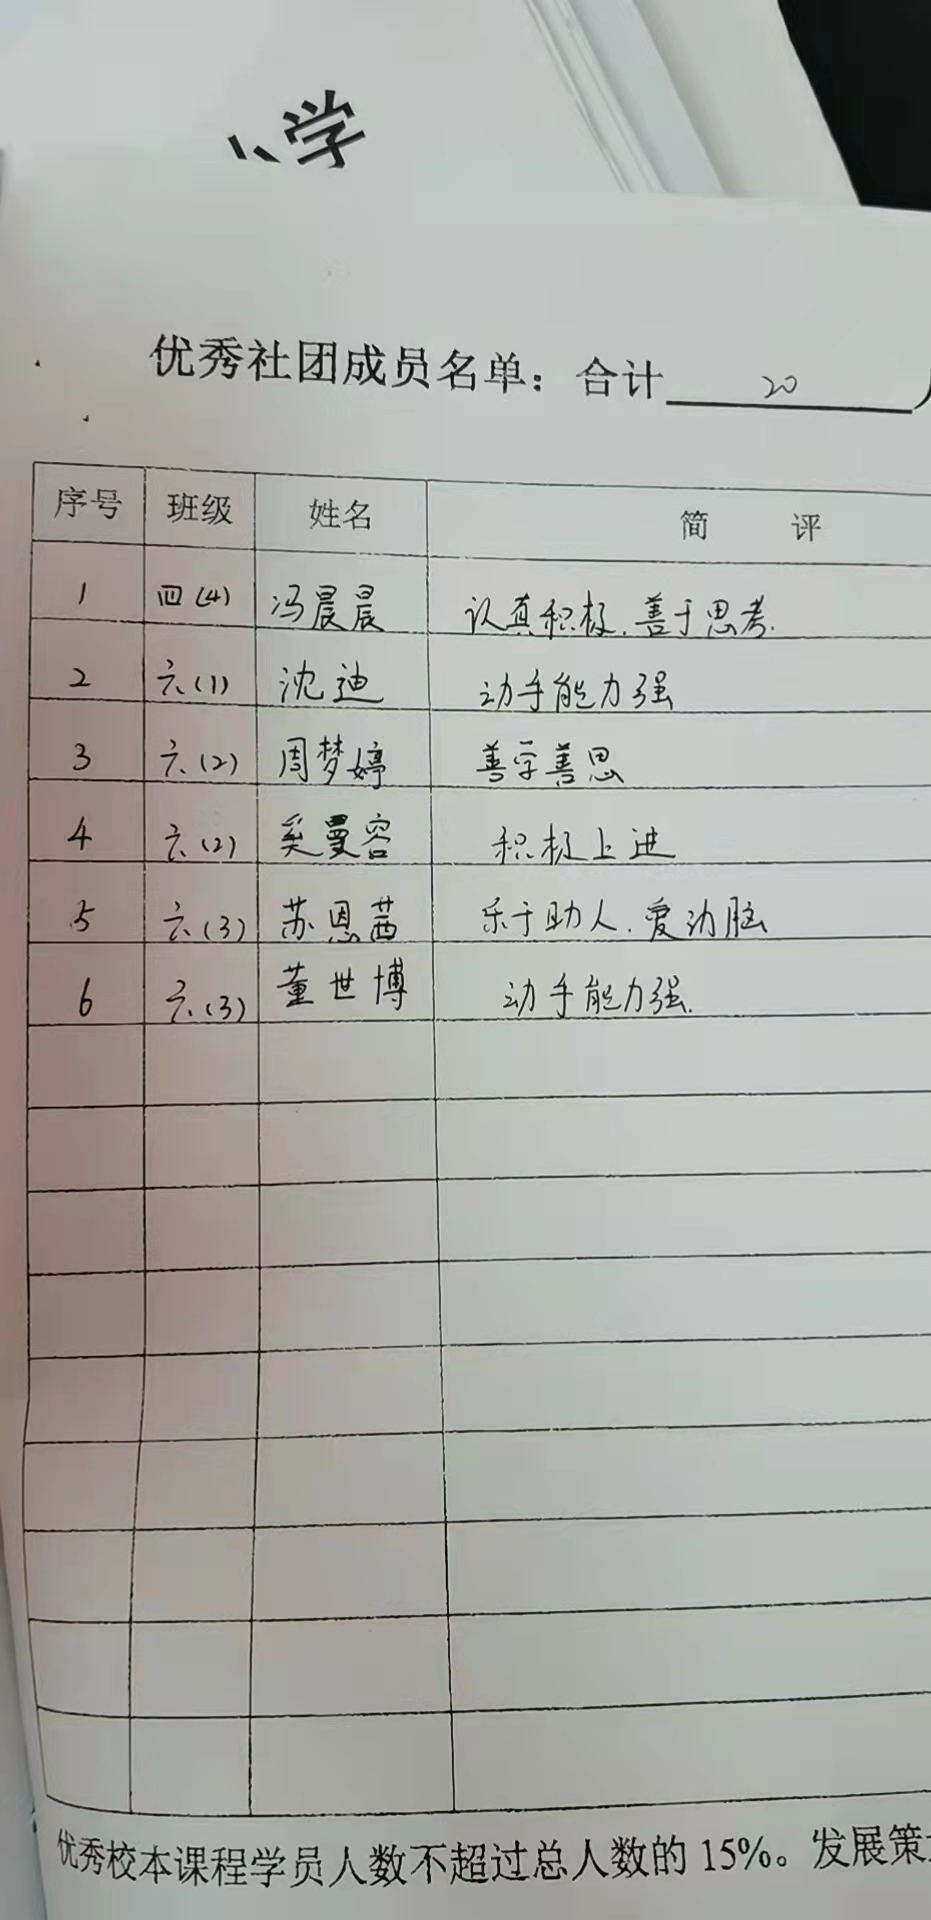 小学
优秀社团成员名单：合计 20 人
序号 班级 姓名 简 评
1 四(4) 冯晨晨 认真积极.善于思考.
2 六(1) 沈迪 动手能力强
3 六(2) 周梦婷 善学善思
4 六(2) 奚曼容 积极上进
5 六(3) 苏恩茜 乐于助人.爱动脑
6 六(3) 董世博 动手能力强.
优秀校本课程学员人数不超过总人数的 15%。发展策